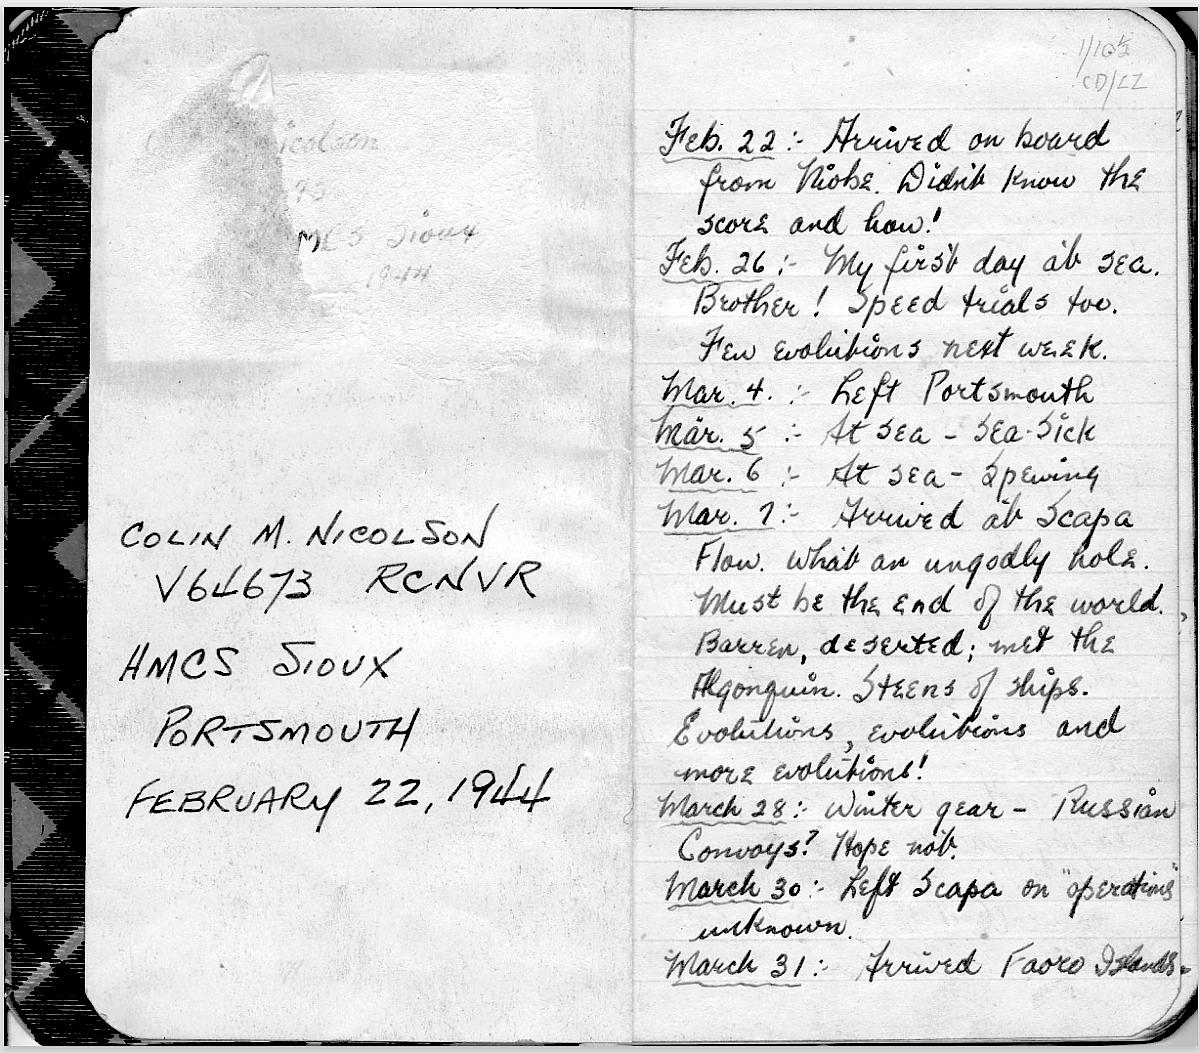 icolson
MCS Sioux
1944
COLIN M. NICOLSON
V64673 RCNVR
HMCS SIOUX
PORTSMOUTH
FEBRUARY 22, 1944
1/10½
CD/ZZ
Feb. 22 :- Arrived on board
from Niobe. Didn't know the
score and how!
Feb. 26 :- My first day at sea.
Brother! Speed trials too.
Few evolutions next week.
Mar. 4. :- Left Portsmouth
Mar. 5 :- At sea - Sea-Sick
Mar. 6 :- At sea - Spewing
Mar. 7 :- Arrived at Scapa
Flow. What an ungodly hole.
Must be the end of the world.
Barren, deserted; met the
Algonquin. Steens of ships.
Evolutions, evolutions and
more evolutions!
March 28 :- Winter gear - Russian
Convoys? Hope not.
March 30 :- Left Scapa on "operations"
unknown.
March 31 :- Arrived Faoro Islands.